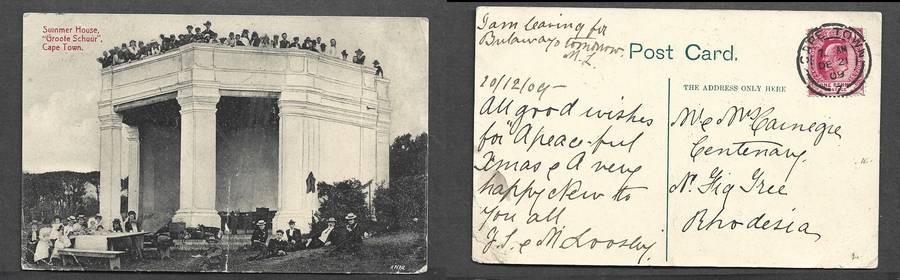 Summer House,
"Groote Schuur",
Cape Town.
I am leaving for
Bulawayo tomorrow
M. L.
Post Card.
THE ADDRESS ONLY HERE
CAPE TOWN
DE 21
09
20/12/09-
All good wishes
for "A peaceful
Xmas & A very
happy New to
you all
J.S. & M Loosley.
Mr & Mrs Carnegie
Centenary.
Nr. Fig Tree
Rhodesia